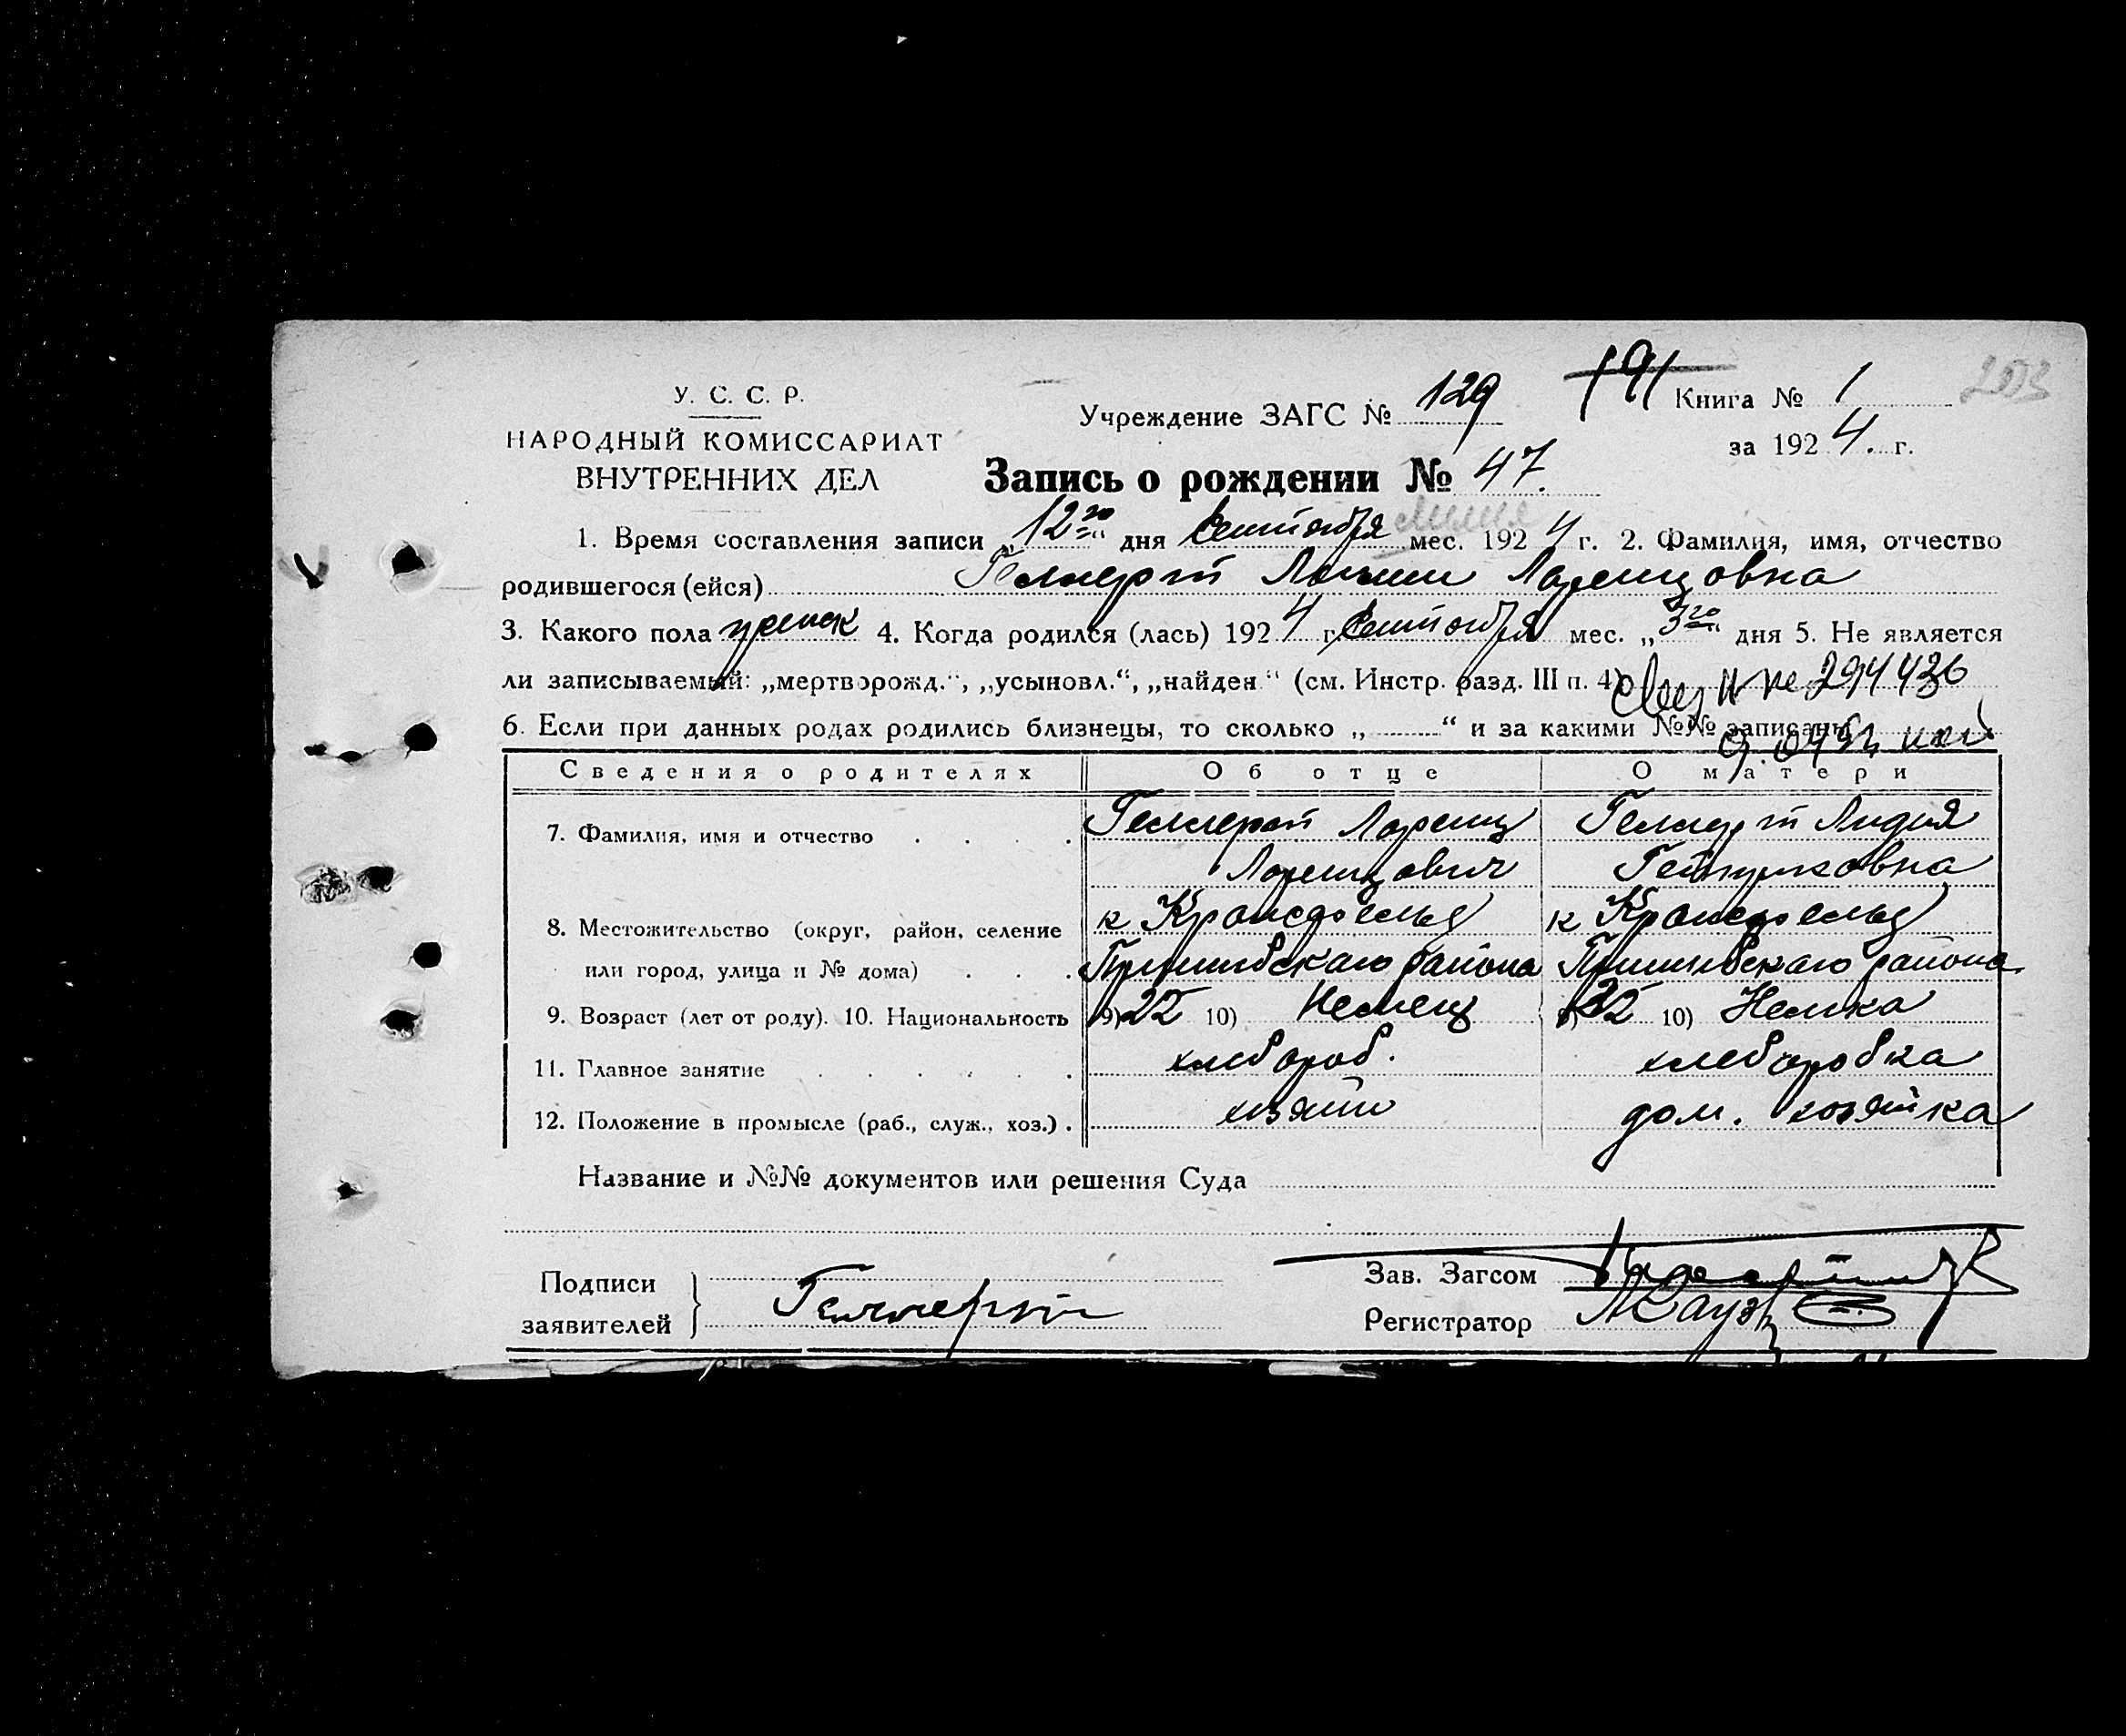 У. С. С. Р.
НАРОДНЫЙ КОМИССАРИАТ
ВНУТРЕННИХ ДЕЛ
Учреждение ЗАГС № 129
191 Книга № 1 203
за 1924 г.
Запись о рождении № 47.
1. Время составления записи „12го“ дня Сентября мес. 1924 г. 2. Фамилия, имя, отчество
родившегося (ейся) Геллерт Лоренцовна
3. Какого пола женск 4. Когда родился (лась) 1924 г. Сентября мес. „3го“ дня 5. Не является
ли записываемый: „мертворожд.“, „усыновл.“, „найден“ (см. Инстр. разд. III п. 4) 294436
6. Если при данных родах родились близнецы, то сколько „ “ и за какими №№ записаны
Сведения о родителях Об отце О матери
7. Фамилия, имя и отчество . . . . Геллерт Лоренц Геллерт Лидия
Лоренцович Гейнриховна
8. Местожительство (округ, район, селение к к
или город, улица и № дома) . . . Пришибскаго района Пришибскаго района
9. Возраст (лет от роду). 10. Национальность 9) 22 10) Немец 9) 22 10) Немка
11. Главное занятие . . . . . . хлебороб. хлеборобка
12. Положение в промысле (раб., служ., хоз.) . хозяин дом. хозяйка
Название и №№ документов или решения Суда
Подписи
заявителей } Геллерт
Зав. Загсом
Регистратор